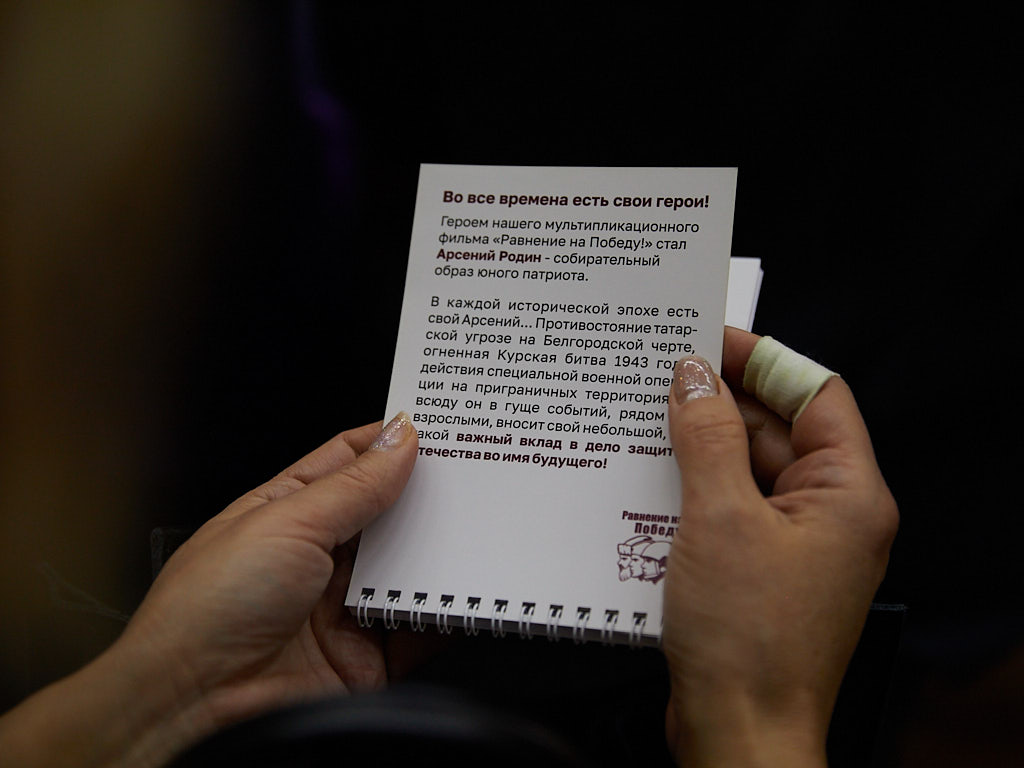 Во все времена есть свои герои!
Героем нашего мультипликационного
фильма «Равнение на Победу!» стал
Арсений Родин - собирательный
образ юного патриота.
В каждой исторической эпохе есть
свой Арсений... Противостояние татар-
ской угрозе на Белгородской черте,
огненная Курская битва 1943 год
действия специальной военной опе
ции на приграничных территория
всюду он в гуще событий, рядом
взрослыми, вносит свой небольшой,
акой важный вклад в дело защит
течества во имя будущего!
Равнение на
Побед